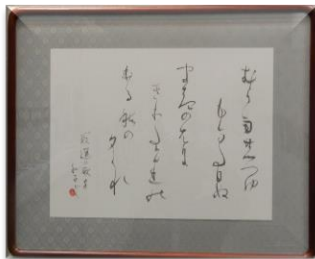 むら雨のつゆ
もまだ日ぬ
まきの葉に
きりたちのほ
る秋の
夕くれ
寂蓮の歌